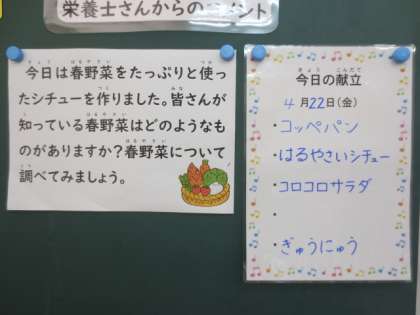 栄養士さんからのコメント
今日は春野菜をたっぷりと使っ
たシチューを作りました。皆さんが
知っている春野菜はどのようなも
のがありますか?春野菜について
調べてみましょう。
今日の献立
4月22日(金)
・コッペパン
・はるやさいシチュー
・コロコロサラダ
・
・ぎゅうにゅう